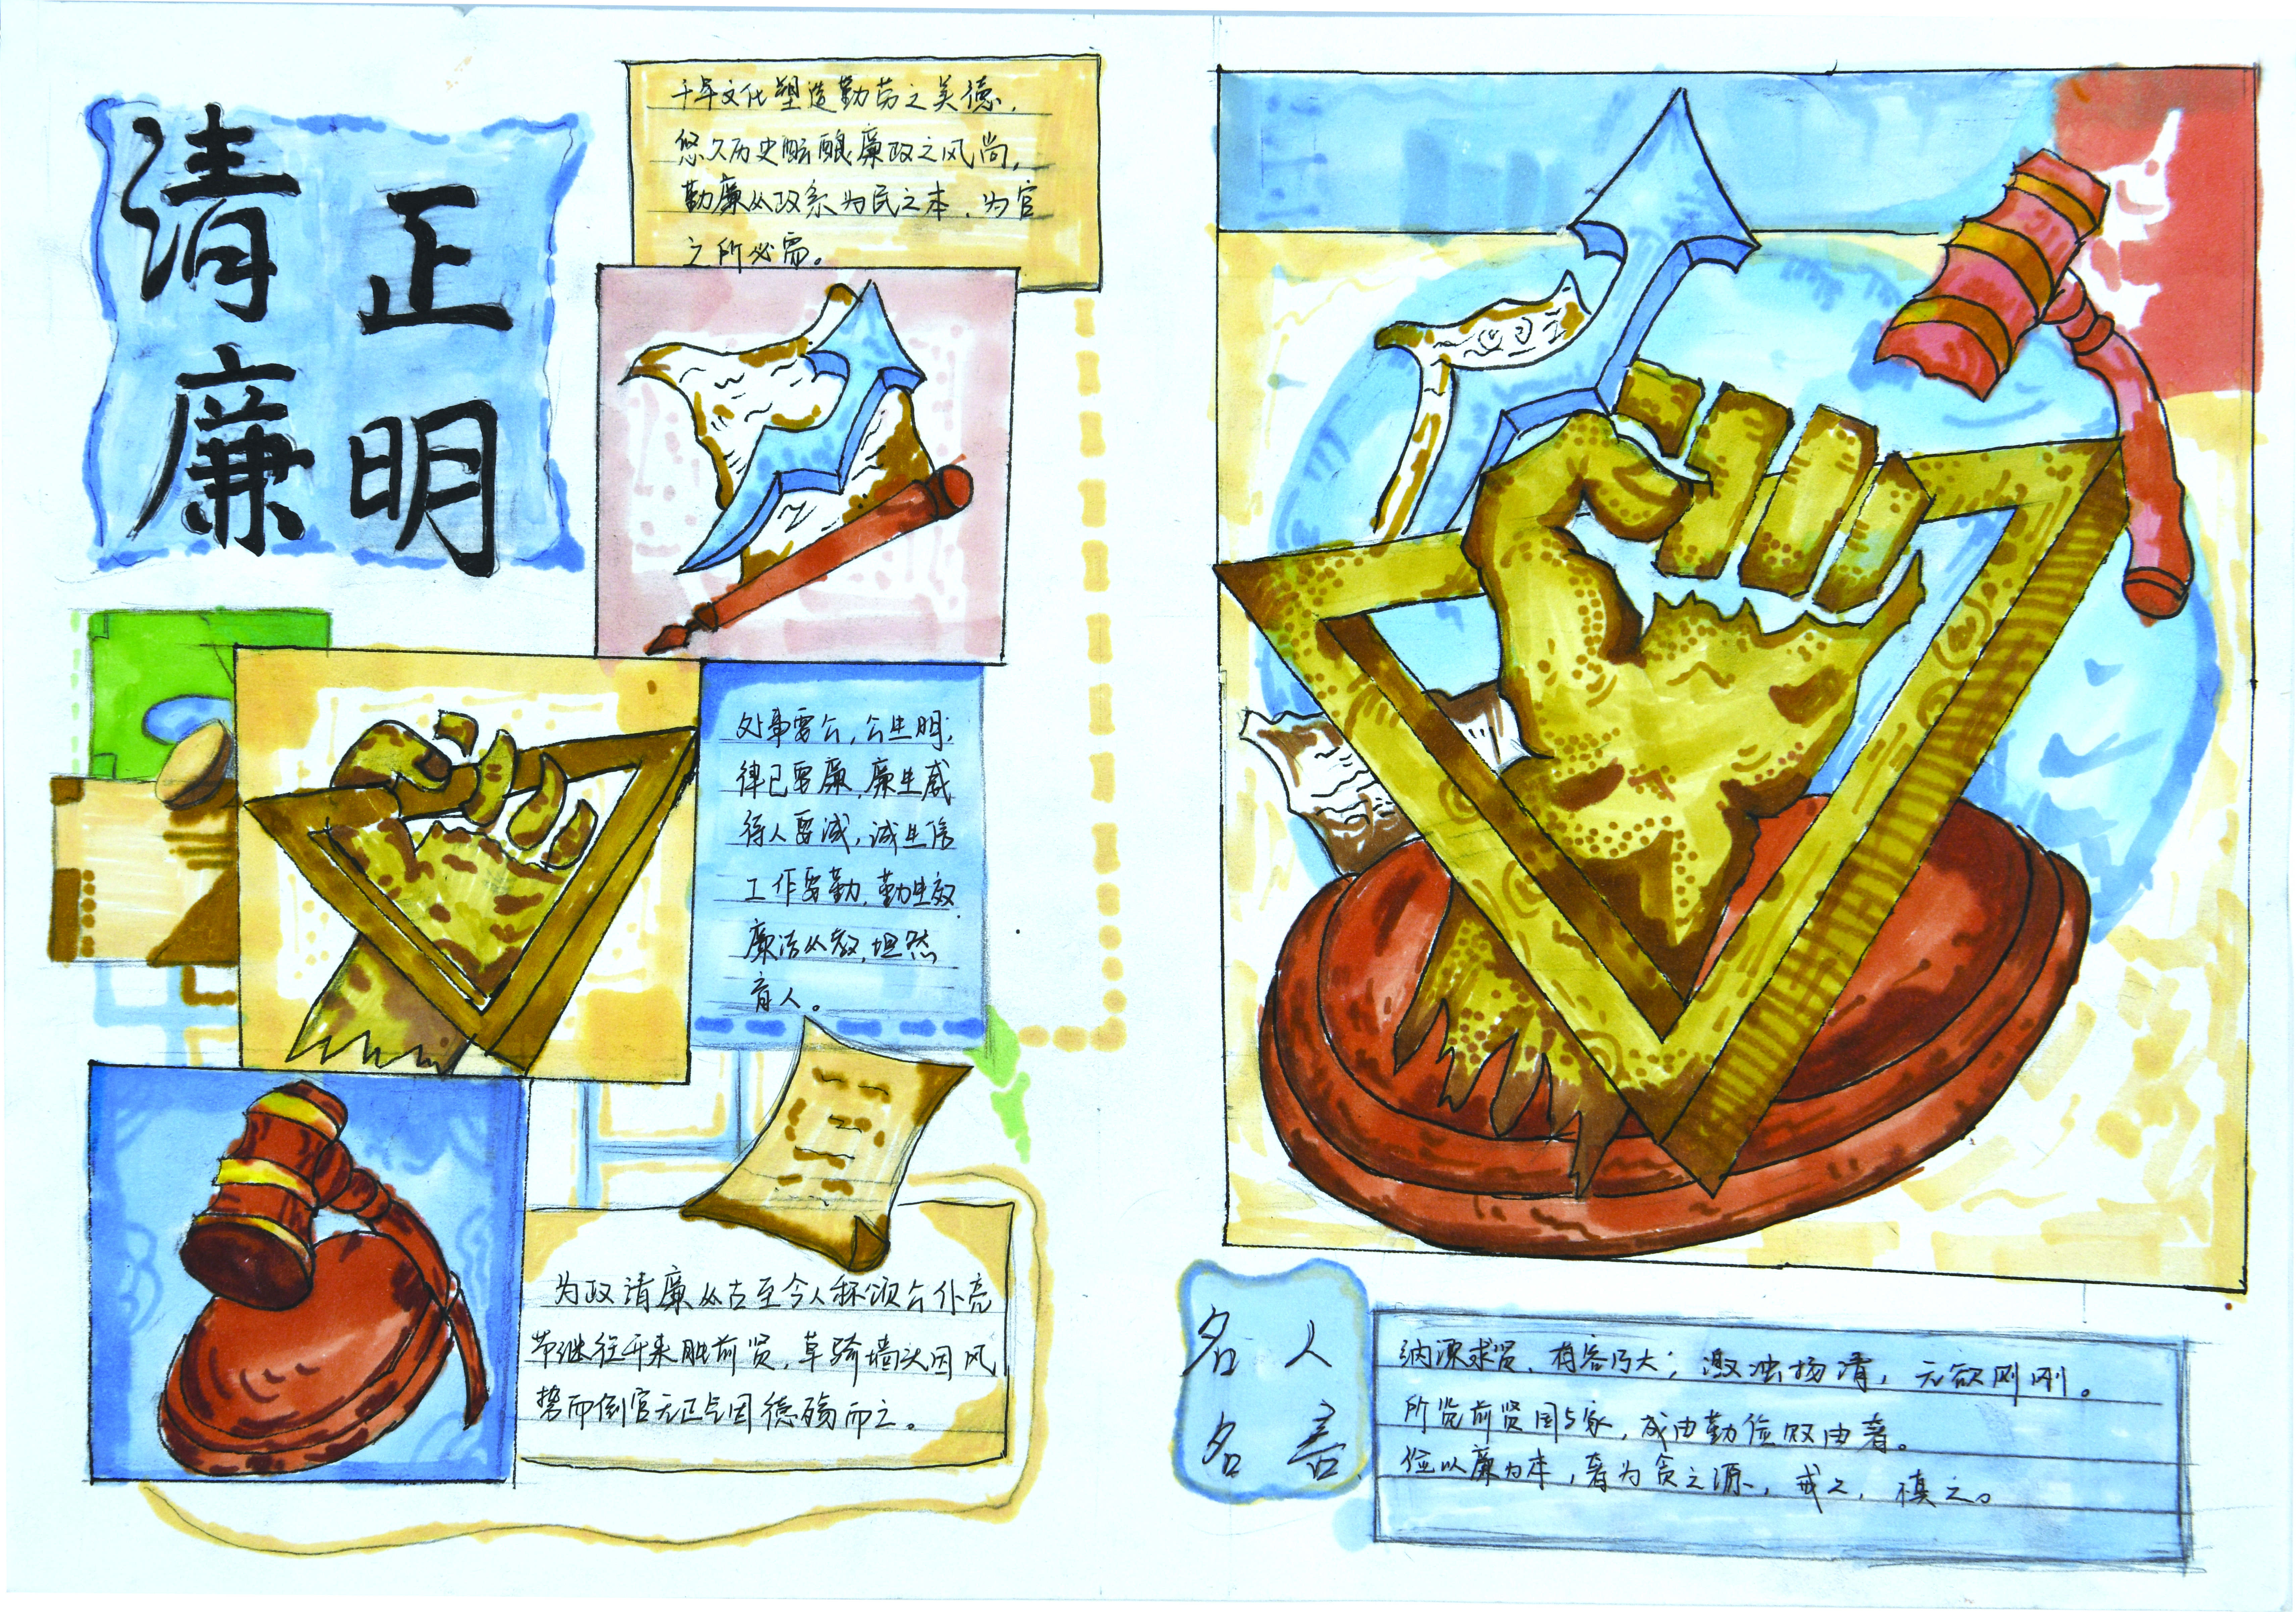 清正
廉明
千年文化塑造勤劳之美德,
悠久历史酝酿廉政之风尚,
勤廉从政系为民之本,为官
之所必需。
处事要公,公生明,
律己要廉,廉生威
待人要诚,诚生信
工作要勤,勤生效
廉洁从教,坦然
育人。
为政清廉从古至今人称颂公仆亮
节继往开来胜前贤,草骑墙头因风
势而倒官无正气因德殇而亡。
名人
名言
纳谏求贤,有容乃大;激浊扬清,无欲则刚。
所览前贤国与家,成由勤俭败由奢。
俭以廉为本,奢为贪之源,戒之,慎之。